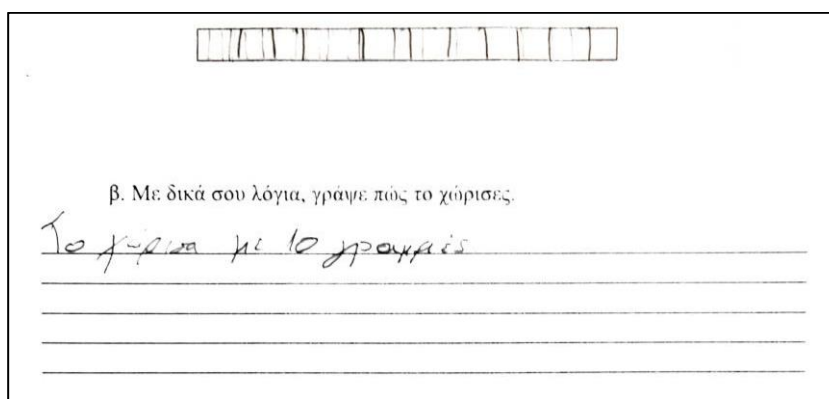 β. Με δικά σου λόγια, γράψε πώς το χώρισες.
Το χώρισα με 10 γραμμές